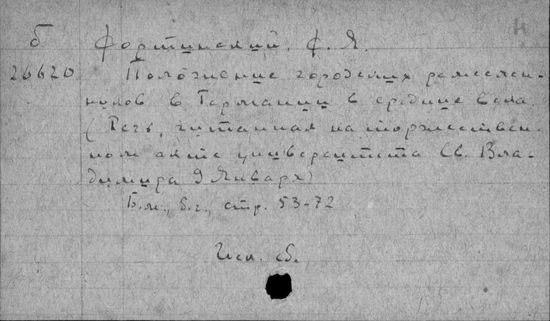 б
Фортинский, Ф. Я.
26620
Положение городских ремеслен-
ников в Германии в средние века
(Речь, читанная на торжествен-
ном акте университета Св. Вла-
димира 9 Января)
Б.м., б.г., стр. 53-72
Исп. сб.